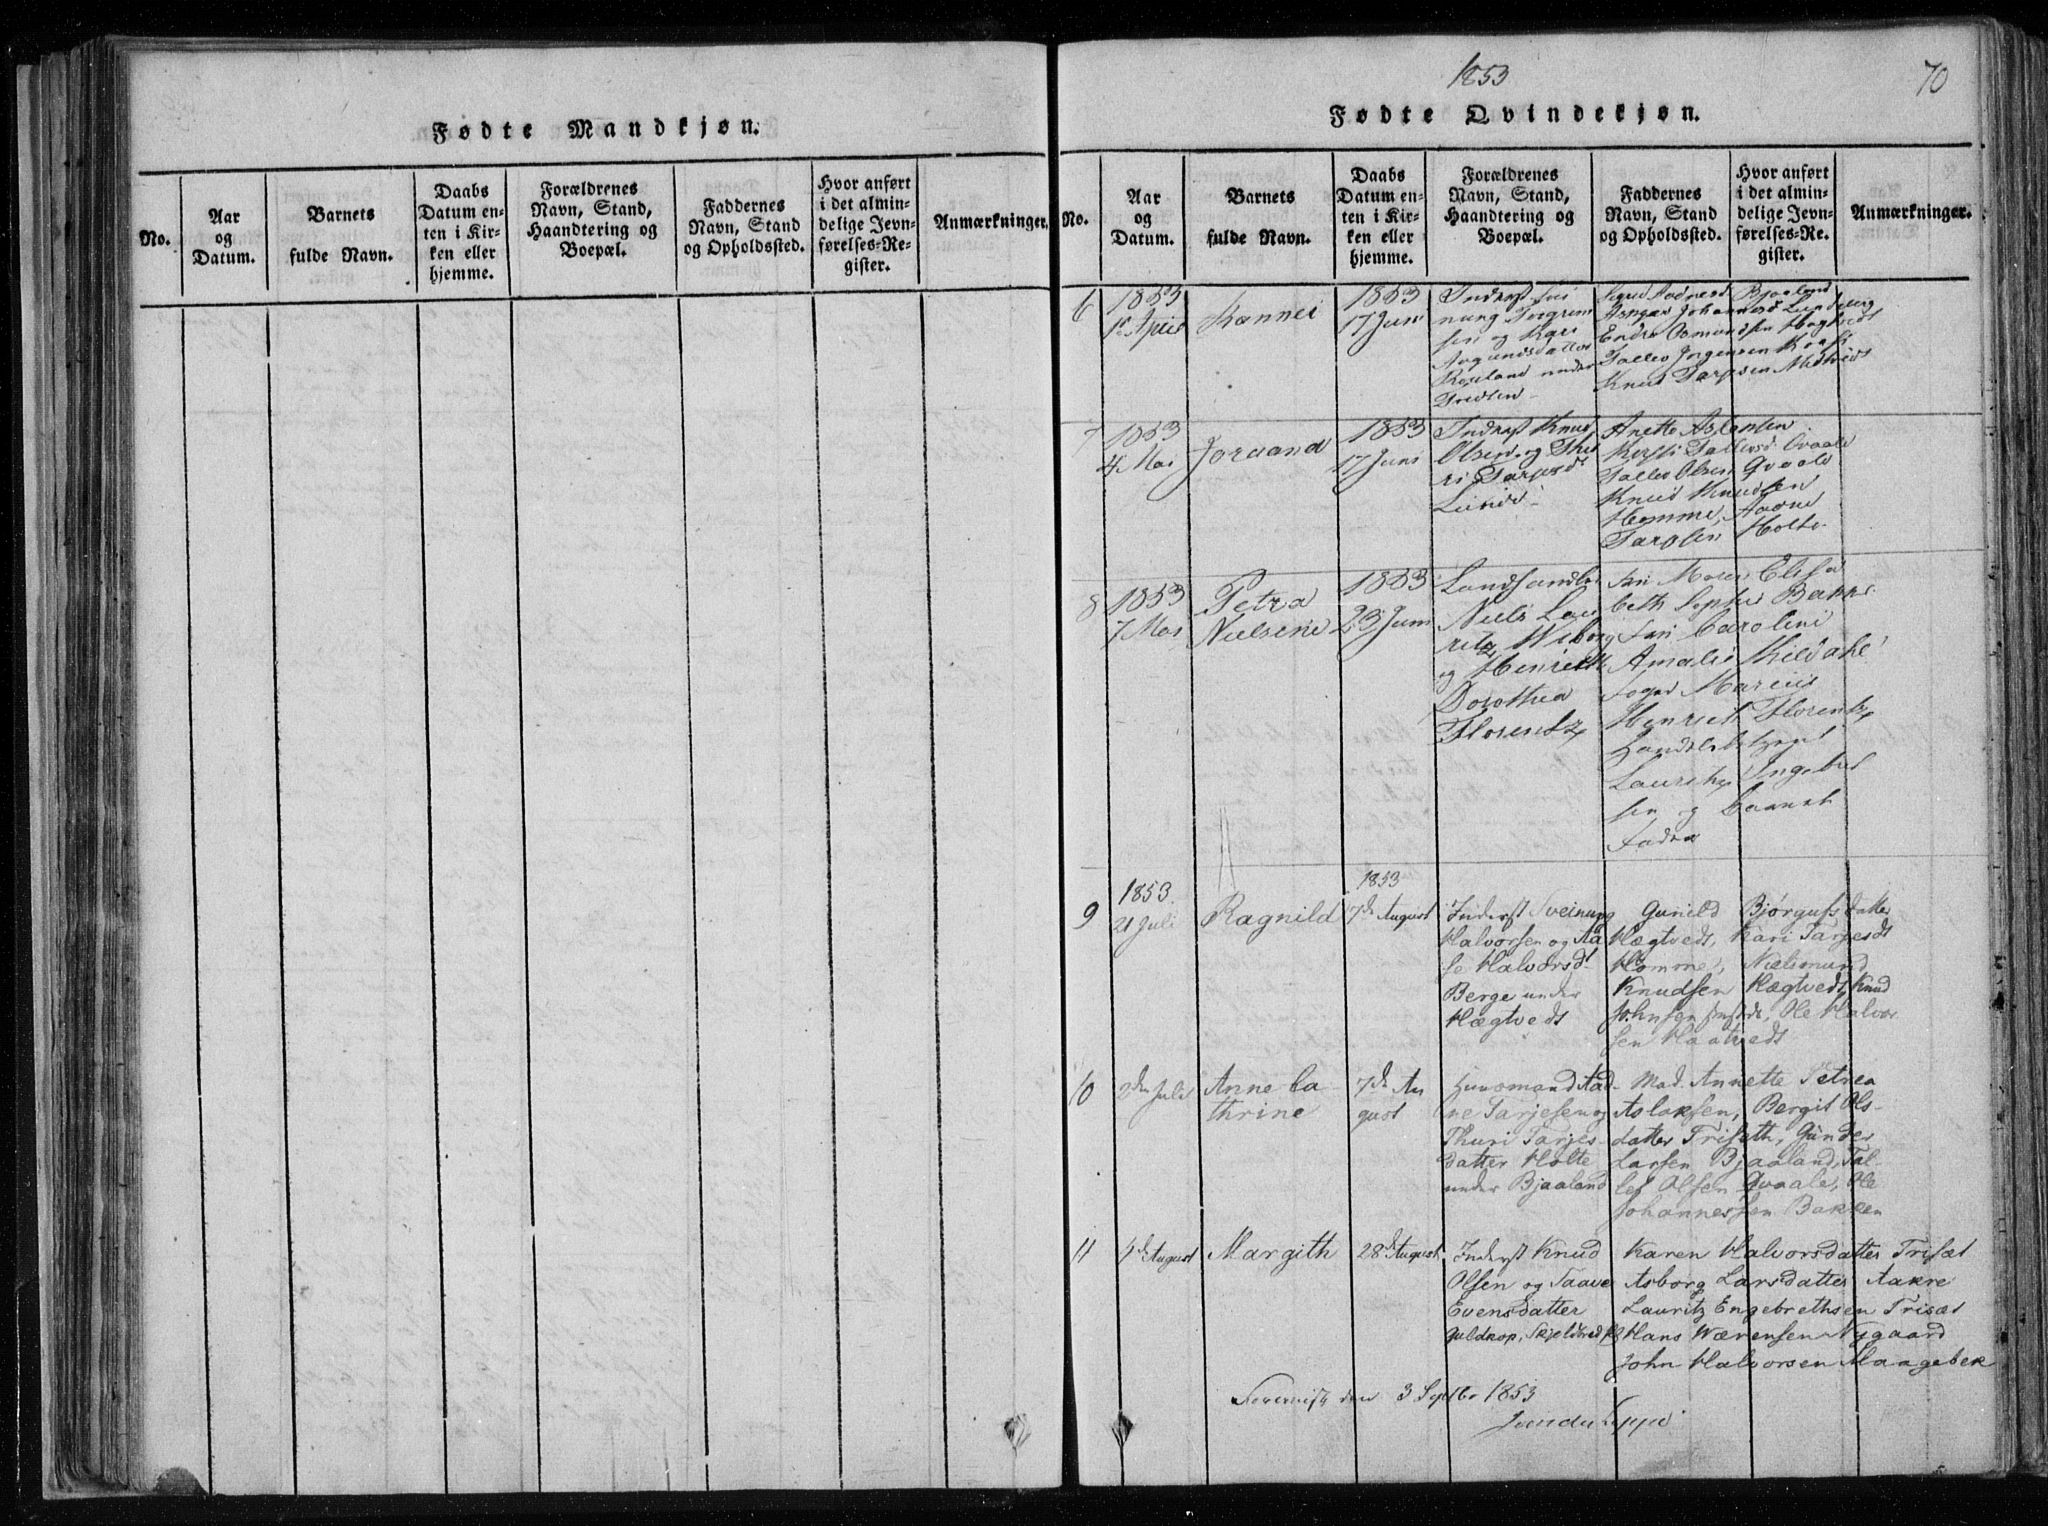 Fødte Mandkjøn.
No.
Aar
og
Datum.
Barnets
fulde Navn.
Daabs
Datum en-
ten i Kir-
ken eller
hjemme.
Forældrenes
Navn, Stand,
Haandtering og
Boepæl.
Faddernes
Navn, Stand
og Opholdssted.
Hvor anført
i det almin-
delige Jevn-
førelses-Re-
gister.
Anmærkninger.
1853
70
Fødte Qvindekjøn.
No.
Aar
og
Datum.
Barnets
fulde Navn.
Daabs
Datum en-
ten i Kir-
ken eller
hjemme.
Forældrenes
Navn, Stand,
Haandtering og
Boepæl.
Faddernes
Navn, Stand
og Opholdssted.
Hvor anført
i det almin-
delige Jevn-
førelses-Re-
gister.
Anmærkninger.
6
1853
April
Kannei
1853
17 Juni
Inderst Svi
nung Torgrim
sen og Kari
Aagundsdatter
Roeland under
Aadnesd Bjaaland
Johannesd Lundeberg
Endre Osmundsen Hægtvedt
Tallev Jørgensen
Knud Tarjesen Midtveit
7
1853
4 Mai
Joraand
1853
17 Juni
Inderst Knud
Olsen og Thu
ri Tarjesd
Lunde
Anette Aslaksen
Kersti Tallevsd. Qvaale
Tallev Olsen Qvaale
Knud Knudsen
Homme, Aavne
Tarjesen Holte
8
1853
7 Mai
Petra
Nielsine
1853
23 Juni
Landhandler
Niels Lau
ritz Wiborg
og Henriette
Dorothea
Florentz
Elisa
beth Sophie Bakke
Caroline
Amalie Kildahl
Foged Marcus
Henrich Florentz
Lauritz Ingebret
sen og Barnets
Fader
9
1853
21 Juli
Ragnild
1853
7de August
Inderst Sveinung
Halvorsen og Aa
se Halvorsd
Berge under
Hægtvedt
Gunild Bjørgufsdatter
Hægtvedt, Kari Tarjesdt
Homme, Nielsmund
Knudsen Hægtvedt, Knud
Johnsen, Ole Halvor
sen Haatvedt
10
2den Juli
Anne Ca
thrine
7de Au
gust
Huusmand Aad-
ne Tarjesen og
Thuri Tarjes-
datter Holte
under Bjaaland
Mad. Annette Petrea
Aslaksen, Bergit Ols-
datter Triseth, Gunder
Larsen Bjaaland, Tal-
lef Olsen Qvaale, Ole
Johannessen Bakken
11
4de August
Margith
28de August
Inderst Knud
Olsen og Taave
Evensdatter
Guldkop, Skjeldbred
Karen Halvorsdatter Trisæt
Asborg Larsdatter Aakre
Lauritz Engebrethsen Trisæt
Hans Wærensen Nygaard
John Halvorsen Maagebek
den 3 Septbr 1853